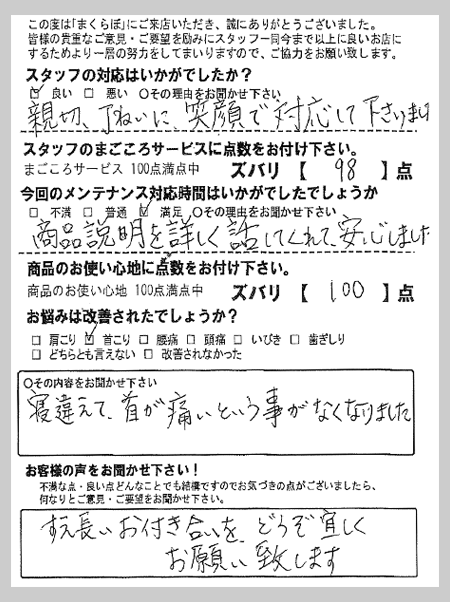 この度は「まくらぼ」にご来店いただき、誠にありがとうございました。
皆様の貴重なご意見・ご要望を励みにスタッフ一同今まで以上に良いお店に
するためより一層の努力をしてまいりますので、ご協力をお願い致します。
スタッフの対応はいかがでしたか？
☑ 良い □ 悪い ○その理由をお聞かせ下さい
親切、丁ねいに、笑顔で対応して下さりました
スタッフのまごころサービスに点数をお付け下さい。
まごころサービス 100点満点中 ズバリ 【 98 】点
今回のメンテナンス対応時間はいかがでしたでしょうか
□ 不満 □ 普通 ☑ 満足 ○その理由をお聞かせ下さい
商品説明を詳しく話してくれて、安心しました
商品のお使い心地に点数をお付け下さい。
商品のお使い心地 100点満点中 ズバリ 【 100 】点
お悩みは改善されたでしょうか？
□ 肩こり ☑ 首こり □ 腰痛 □ 頭痛 □ いびき □ 歯ぎしり
□ どちらとも言えない □ 改善されなかった
○その内容をお聞かせ下さい
寝違えて、首が痛いという事がなくなりました
お客様の声をお聞かせ下さい！
不満な点・良い点どんなことでも結構ですのでお気づきの点がございましたら、
何なりとご意見・ご要望をお聞かせ下さい。
すえ長いお付き合いを、どうぞ宜しく
お願い致します